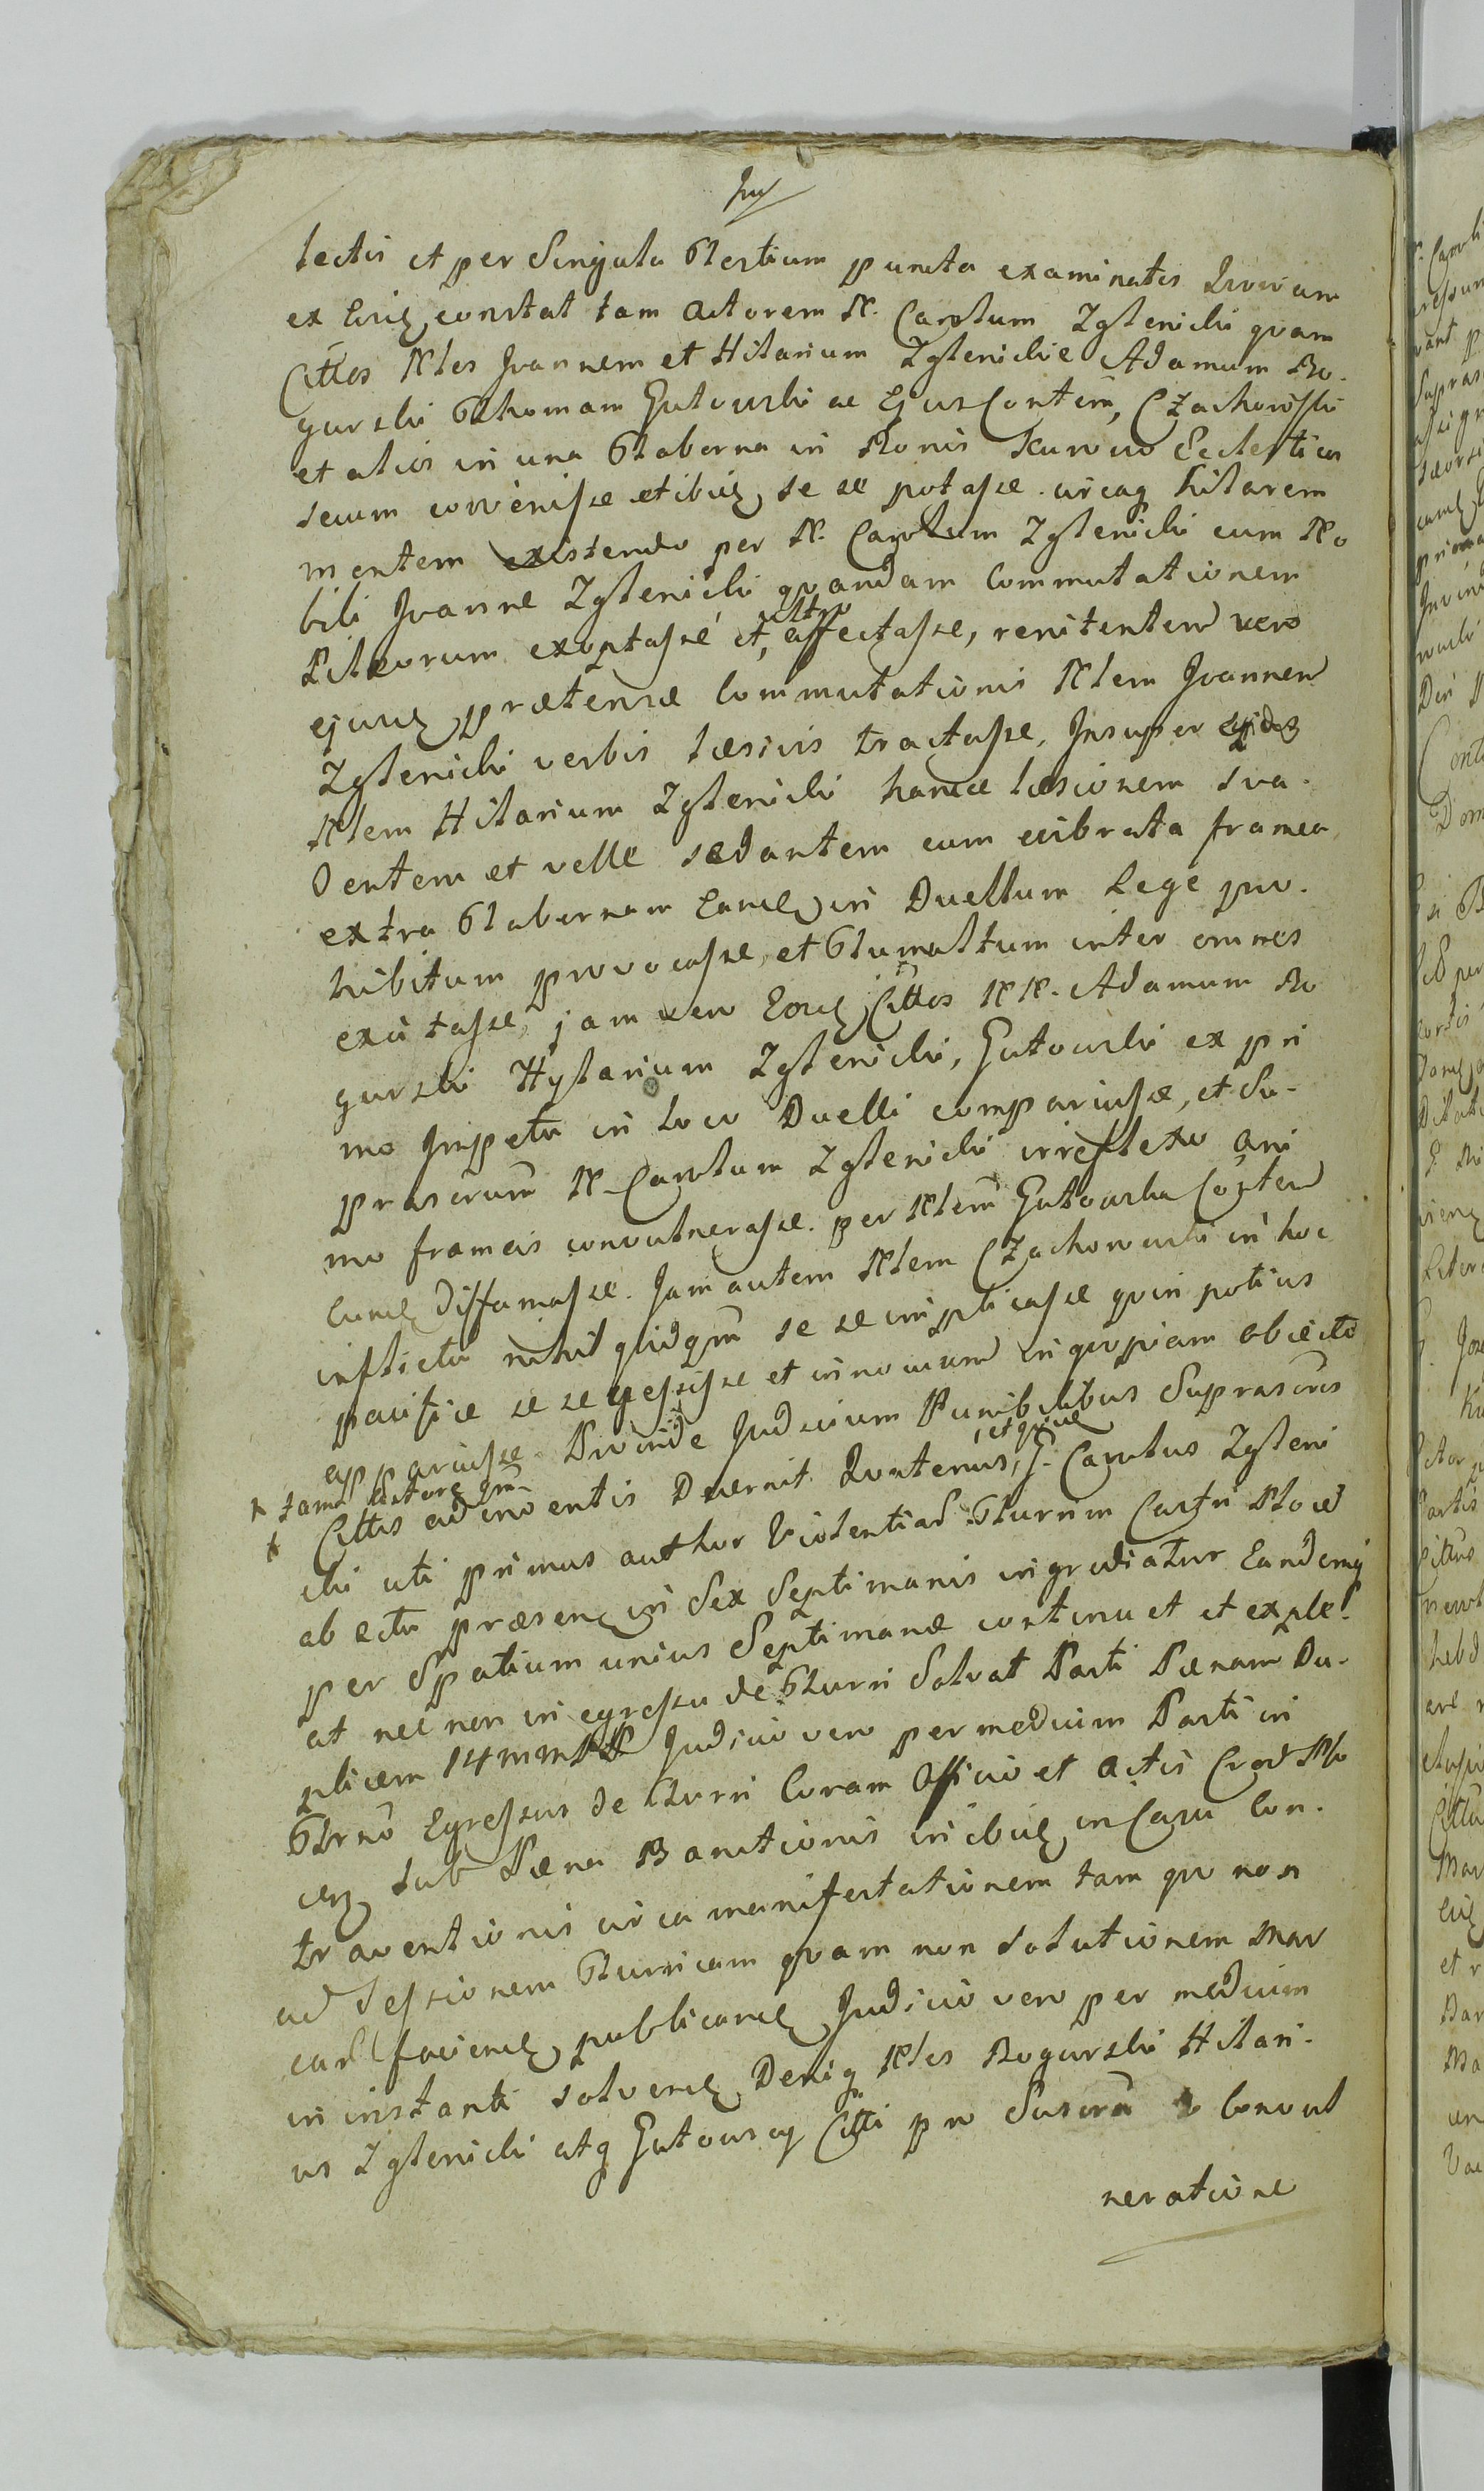 lectis et per Singula Testium puncta examinatis Quoniam
ex Eisd constat tam Actorem N. Carolum Zglenicki quam
Cittos Nles Joannem et Hilarium Zglenickie Adamum Ro-
gurski Thomam Gutowski ac Ejus Contem, Czachowski
et alios in una Taberna in Bonis Kurowo Eccletia
secum convenisse et ibid se se potasse circaq hilarem
mentem existendo per N. Carolum Zglenicki cum No
bili Joanne Zglenicki quandam Commutationem
Pileorum exoptasse et ultro affectasse, renitentem vero
ejusd prætensæ Commutationis Nlem Joannem
Zglenicki verbis læsivis tractasse, Insuper
Nlem Hilarium Zglenicki hancce læsionem sva-
dentem et velle sedantem cum vibrata framea
extra Tabernam Eand in Duellum Lege pro-
hibitum provocasse, et Tumultum inter omnes
excitasse, jam vero Eosd Cittos NN. Adamum Ro
gurski Hylarium Zglenicki, Gutowski ex pri
mo Impetu in loco Duelli comparuisse, et Su-
prascrum N. Carolum Zglenicki irreflexo ani
mo frameis convulnerasse. per Nlem Gutowska Contem
Eund diffamasse. Jam autem Nlem Czachowski in hoc
inflictu nihil quidqm se se implicasse quin potius
pacifice se se gessisse et innocuum in quopiam objecto
apparuisse. Proinde Judicium Punibilibus Suprascris
* tam Actore qm
* Cittis adinventis Decernit Quatenus, G. Carolus Zgleni
cki uti primus author Violentiæ Turrim Castri Plocen
ab actu præsend in Sex Septimanis ingrediatur Eandemq
per Spatium unius Septimanæ continuet et exple-
at nec non in egressu de Turri Solvat Parti Pænam Du-
plicem 14 mm PP Judicio vero per medium Parti in
Termo Egressus de Turri Coram Officio et Actis Crod Plo
cen sub Pæna Banitionis inibid in Casu Con-
traventionis circa manifestationem tam quo non
ad sessionem Turricam quam non solutionem Mar
carl faciend, publicand Judicio vero per medium
in instanti solvend Deniq Nles Rogurski Hilari-
us Zglenicki atq Gutowscy Citti pro Suscra Convul
neratione